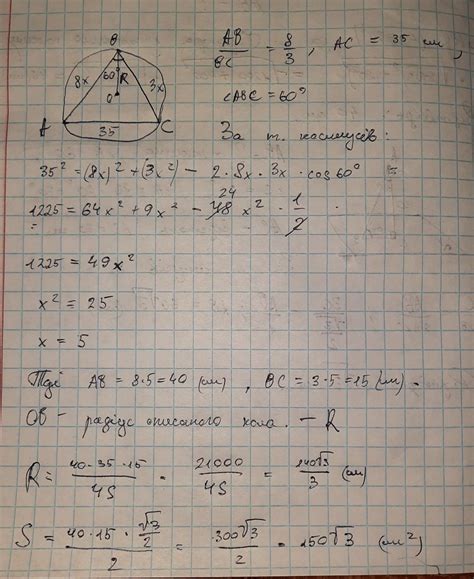 B
8x 60° R 3x
O
A 35 C
AB/BC = 8/3, AC = 35 см,
∠ABC = 60°
За т. косинусів:
35² = (8x)² + (3x²) - 2 · 8x · 3x · cos60° =
1225 = 64x² + 9x² - 48 24 x² · 1/2
1225 = 49x²
x² = 25
x = 5
Тоді AB = 8·5 = 40 (см), BC = 3·5 = 15 (см).
OB - радіус описаного кола. - R
R = 40·35·15/4S = 21000/4S = 140√3/3 (см)
S = 40·15·√3/2/2 = 300√3/2 = 150√3 (см²)